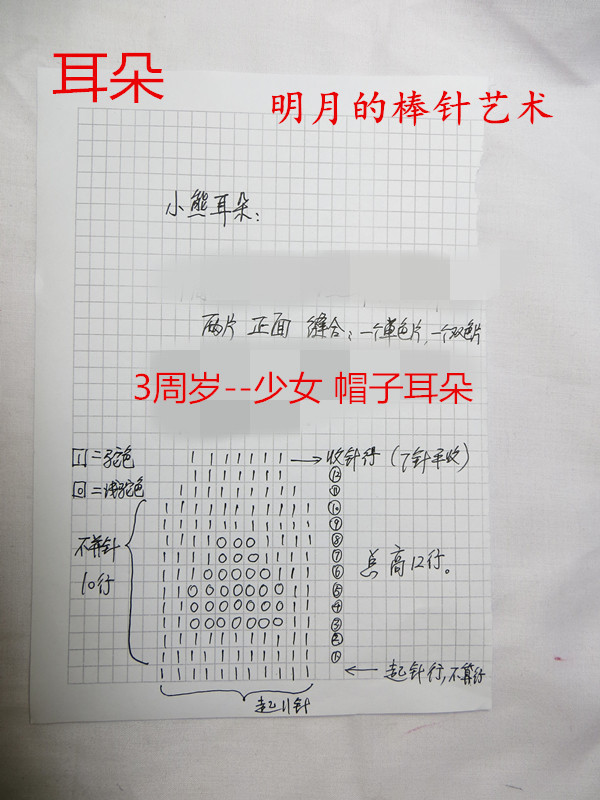 耳朵
明月的棒针艺术
小熊耳朵：
两片 正面 缝合：一个单色片，一个双色片
3周岁--少女 帽子耳朵
1=驼色 | | | | | | | → 收针行（7针平收）
0=浅驼色 | | | | | | | ⑫
| | | | | | | | | ⑪
| | | | | | | | | | | ⑩
| | | | | | | | | | | ⑨
不加针 | | | | O O O | | | | ⑧
10行 | | | | O O O | | | | ⑦
| | | O O O O O | | | ⑥ 总高12行。
| | O O O O O O O | | ⑤
| | O O O O O O O | | ④
| | O O O O O O O | | ③
| | | | | | | | | | | ②
| | | | | | | | | | | ①
| | | | | | | | | | | ← 起针行，不算行
起11针